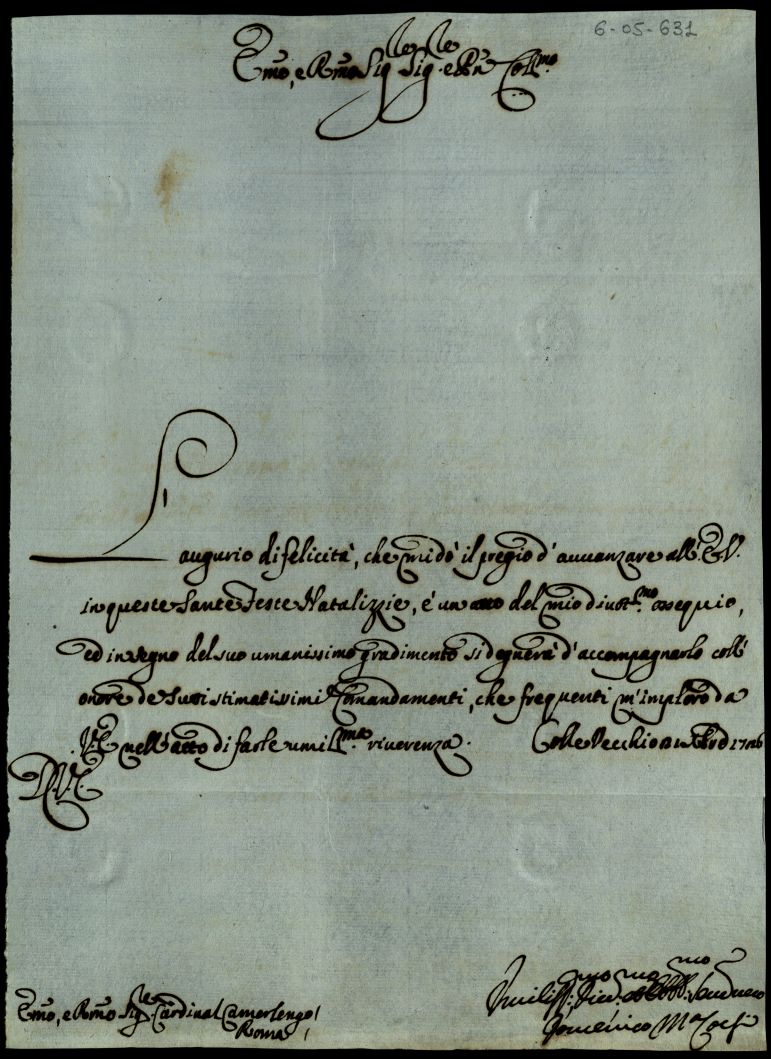 6-05-631
Emo, e Rmo Sigle Sigle e Pñ Collmo
L'
augurio di felicità, che mi dò il pregio d'auuanzare all'E.V.
in queste Sante Feste Natalizzie, è un atto del mio diuotmo ossequio,
ed in segno del suo umanissimo gradimento si degnerà d'accompagnarlo coll'
onore de Suoi stimatissimi Comandamenti, che frequenti m'imploro da
V.E. nell'atto di farle umillma riuerenza. Colle Vecchio
D.V.E.
Emo, e Rmo Sigle Cardinal Camerlengo
Roma
Umilissmo Diuomo ed Obbmo Seruitore
Domenico Ma